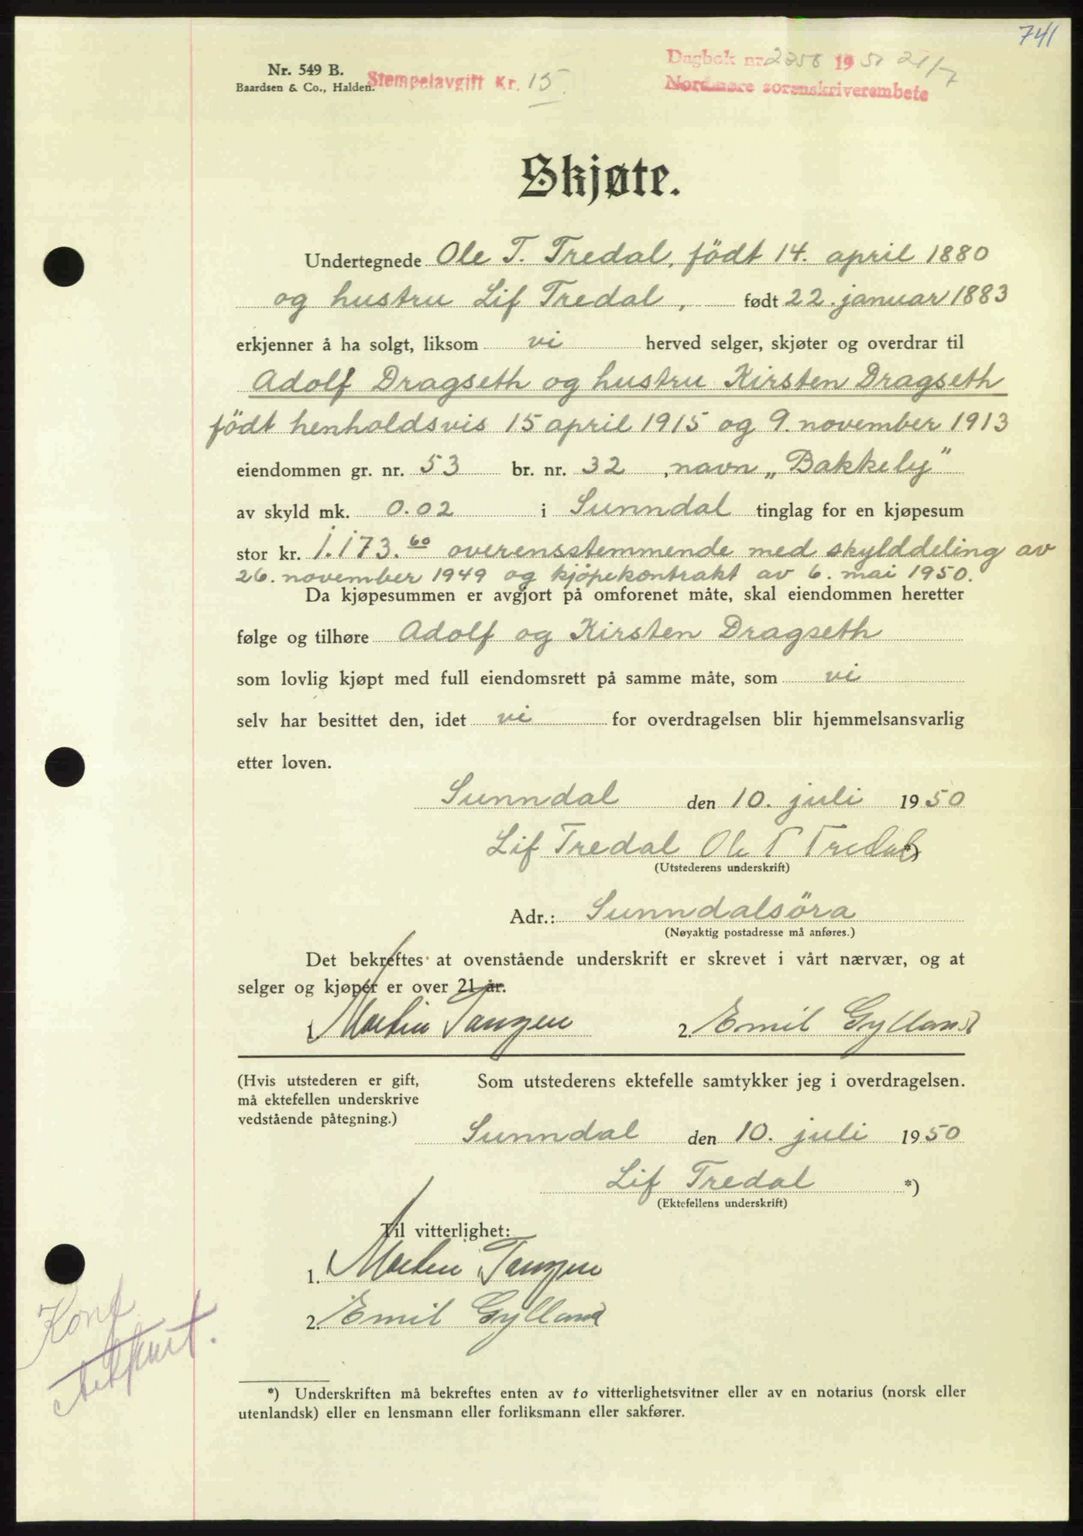 741
Nr. 549 B.
Baardsen & Co., Halden.
Stempelavgift Kr. 15
Dagbok nr. 19 50 21/7
Nordmøre sorenskriverembete
Skjøte.
Undertegnede Ole T. Tredal, födt 14. april 1880
og hustru Lif Tredal, født 22. januar 1883
erkjenner å ha solgt, liksom vi herved selger, skjøter og overdrar til
Adolf Dragseth og hustru Kirsten Dragseth
födt henholdsvis 15 april 1915 og 9. november 1913
eiendommen gr. nr. 53 br. nr. 32, navn „Bakkely"
av skyld mk. 0.02 i Sunndal tinglag for en kjøpesum
stor kr. 1.173.60 overensstemmende med skylddeling av
26. november 1949 og kjöpekontrakt av 6. mai 1950.
Da kjøpesummen er avgjort på omforenet måte, skal eiendommen heretter
følge og tilhøre Adolf og Kirsten Dragseth
som lovlig kjøpt med full eiendomsrett på samme måte, som vi
selv har besittet den, idet vi for overdragelsen blir hjemmelsansvarlig
etter loven.
Sunndal den 10. juli 1950
Lif Tredal Ole T Tredal *)
(Utstederens underskrift)
Adr.: Sunndalsöra
(Nøyaktig postadresse må anføres.)
Det bekreftes at ovenstående underskrift er skrevet i vårt nærvær, og at
selger og kjøper er over 21 år.
1. Tangen 2. Emil Gylland
(Hvis utstederen er gift, Som utstederens ektefelle samtykker jeg i overdragelsen.
må ektefellen underskrive
vedstående påtegning.)
Sunndal den 10. juli 1950
Lif Tredal *)
(Ektefellens underskrift)
Til vitterlighet:
1. Tangen
2. Emil Gylland
Konf
*) Underskriften må bekreftes enten av to vitterlighetsvitner eller av en notarius (norsk eller
utenlandsk) eller en lensmann eller forliksmann eller sakfører.